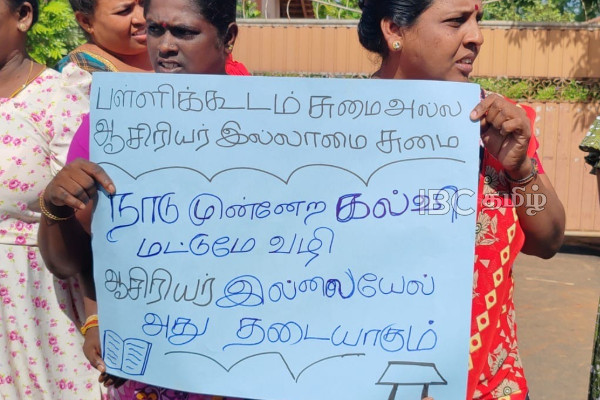 பள்ளிக்கூடம் சுமை அல்ல
ஆசிரியர் இல்லாமை சுமை
நாடு முன்னேற கல்வி
மட்டுமே வழி
ஆசிரியர் இல்லையேல்
அது தடையாகும்
IBC தமிழ்